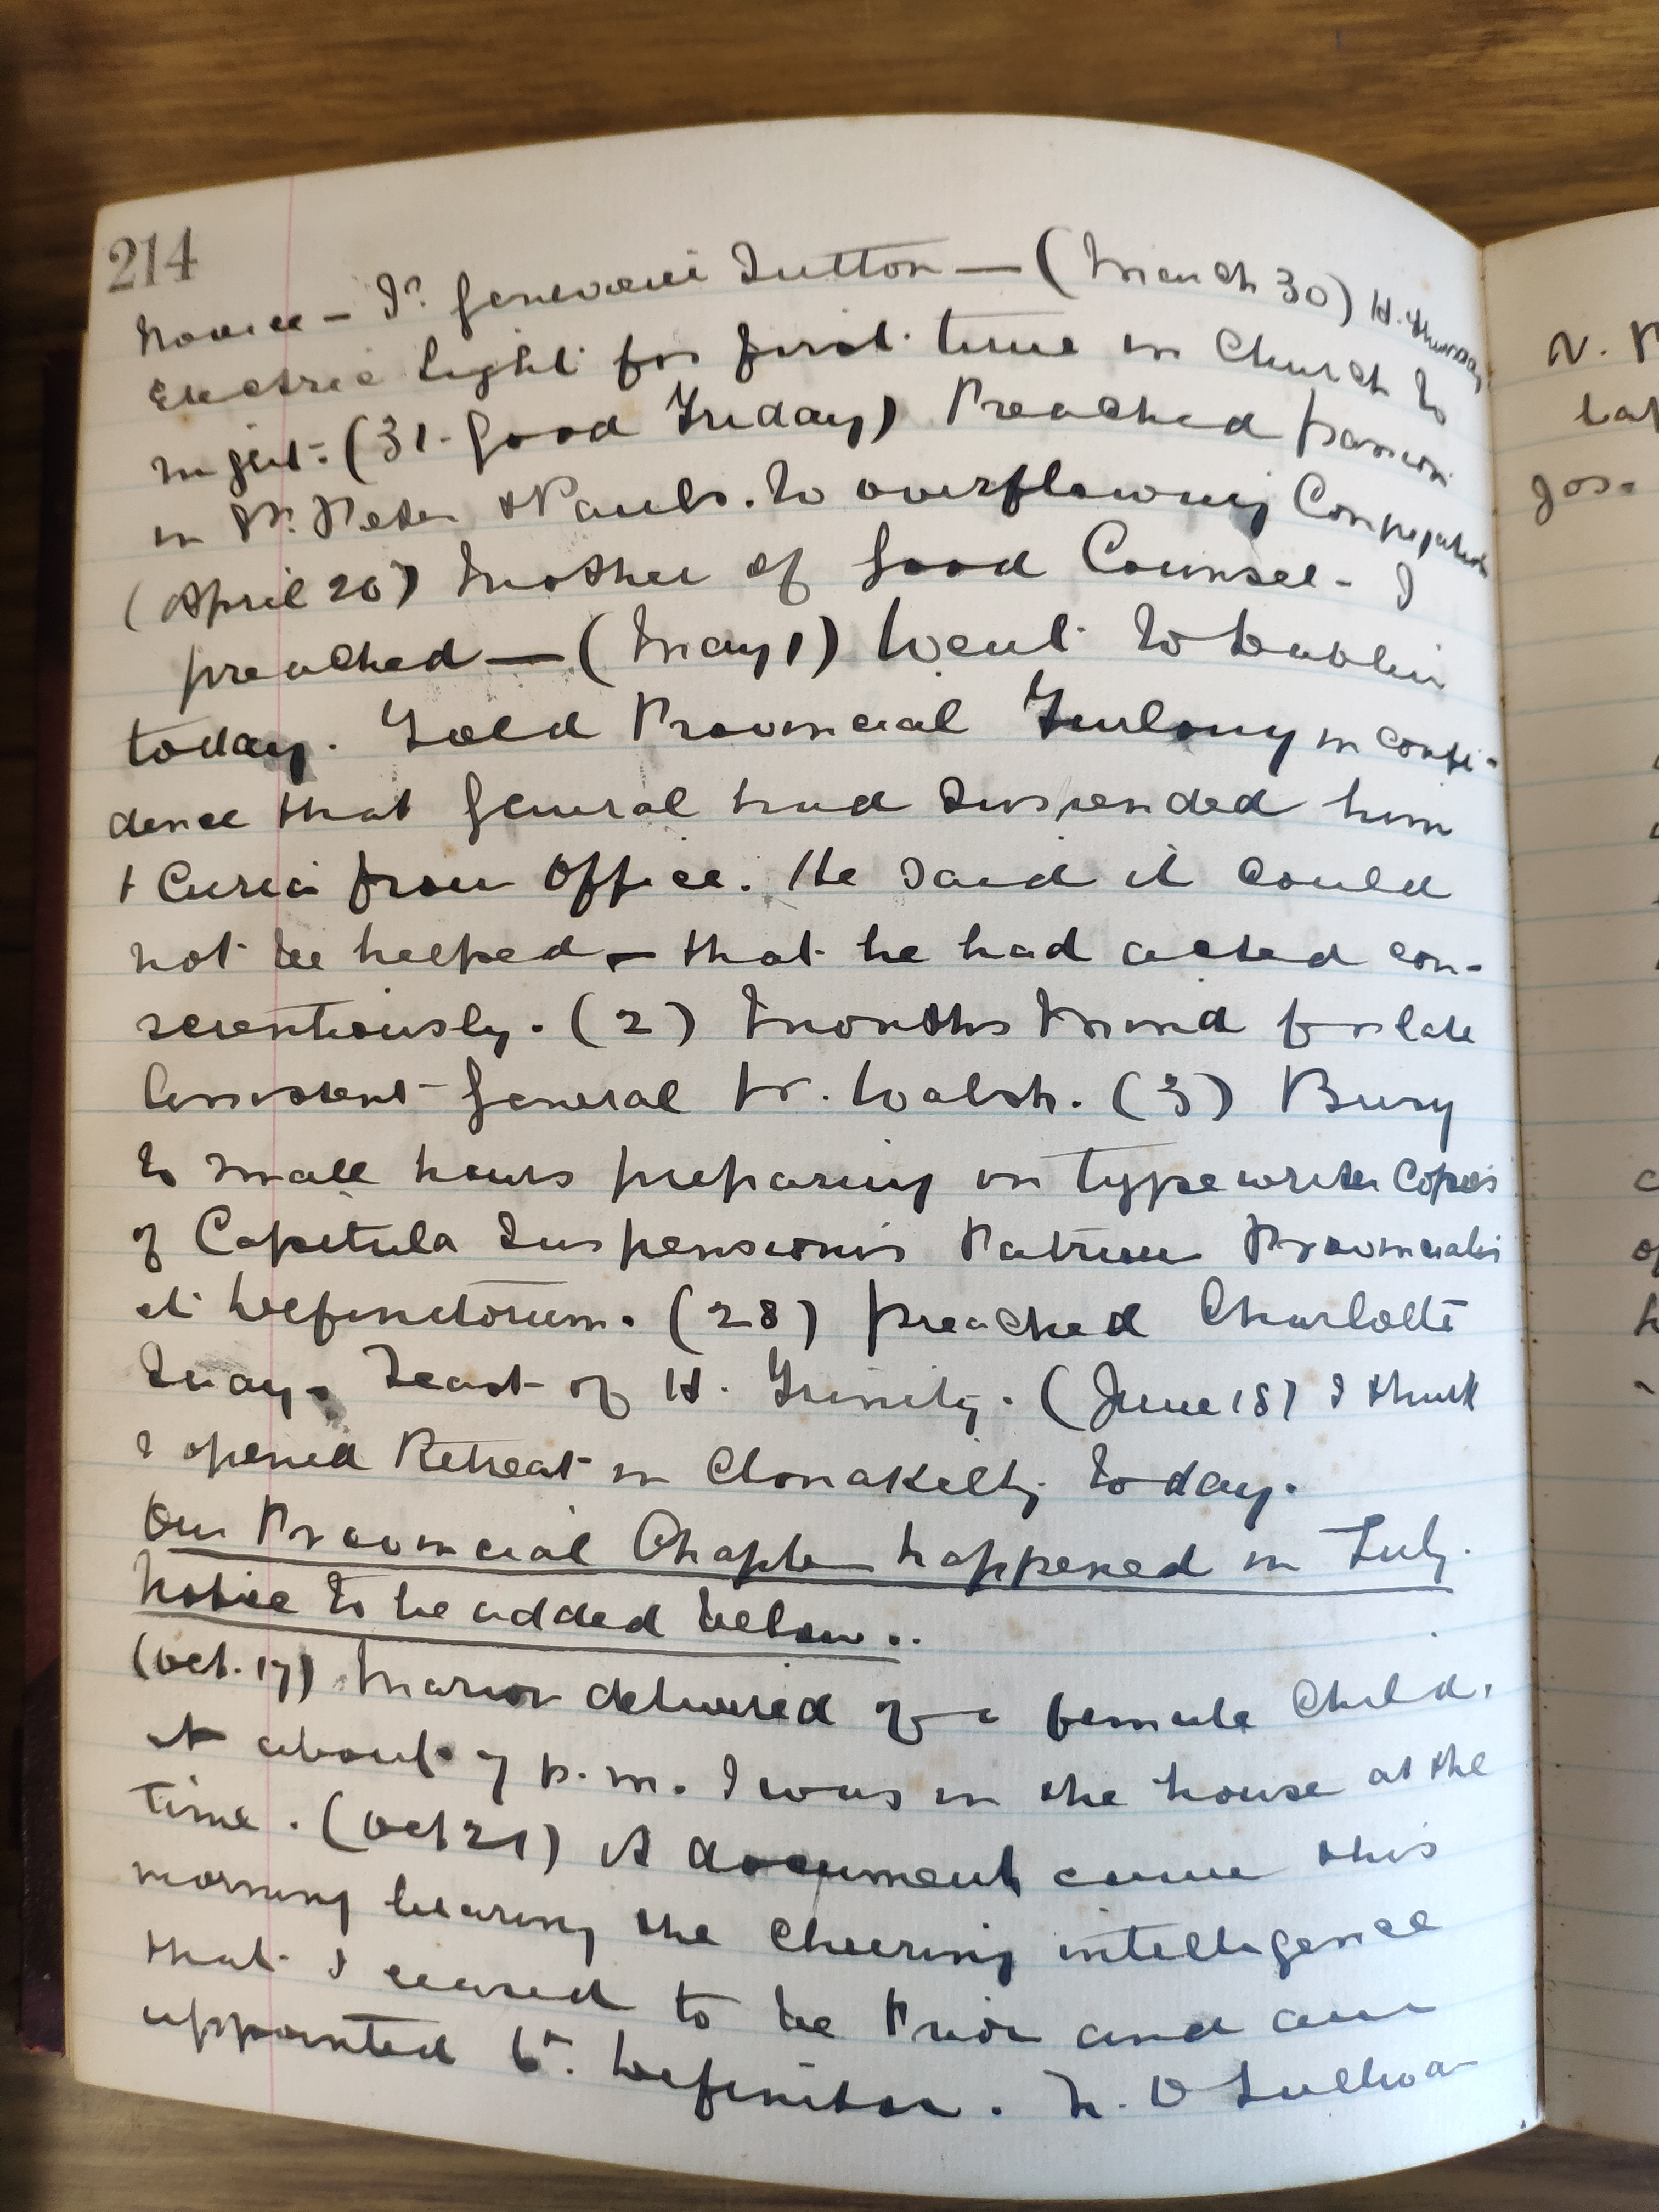 214
Novice – Sr. Genevieve Sutton — (March 30) H. Thursday
Electric light for first time in Church to
night: (31. Good Friday) Preached passion
in SS. Peter & Pauls. to overflowing Congregation
(April 26) Mother of Good Counsel – I
preached — (May 1) Went to Dublin
today. Told Provincial Furlong in confi-
dence that General had suspended him
& Curia from Office. He said it could
not be helped – that he had acted con-
scientiously. (2) Months Mind for late
Assistant General Fr. Walsh. (3) Busy
to small hours preparing on typewriter Copies
of Capitula Suspensionis Patrum Provincialis
et Definitorum. (28) preached Charlotte
Quay. Feast of H. Trinity. (June 18) I think
I opened Retreat in Clonakilty today.
Our Provincial Chapter happened in July.
Notice to be added below..
(Oct. 17) Marion delivered of a female Child.
at about 7 p.m. I was in the house at the
time. (Oct 21) A document came this
morning bearing the cheering intelligence
that I ceased to be Prior and am
appointed 6th. Definitor. N. O Sulliva
N. P
lat
Jos.